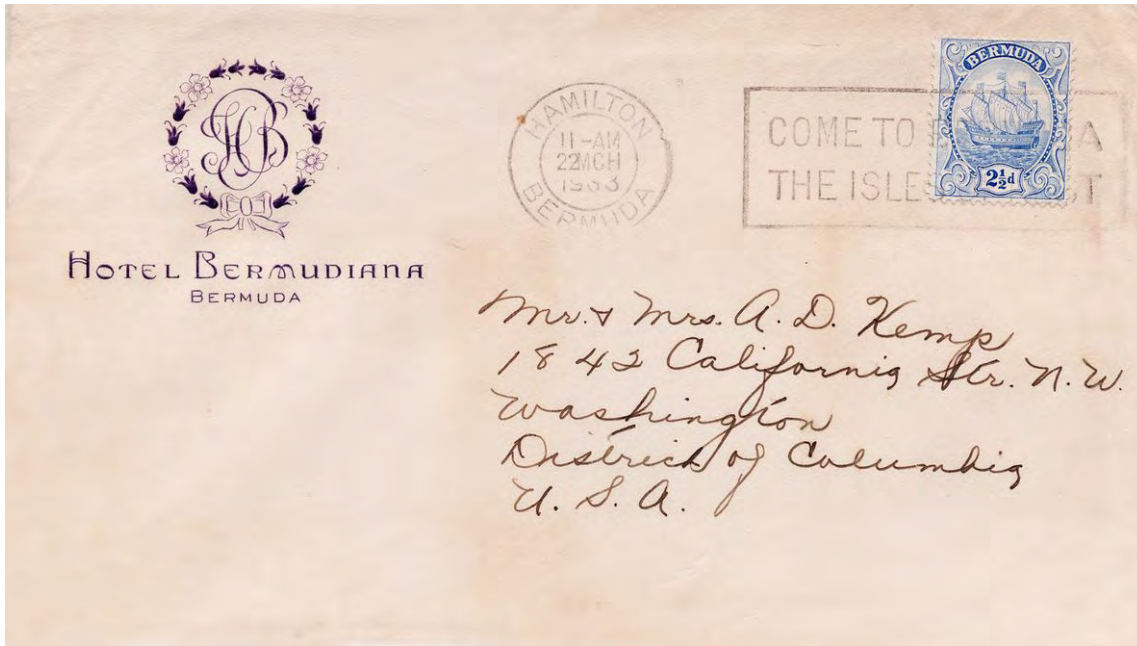 HB
HOTEL BERMUDIANA
BERMUDA
HAMILTON
11-AM
22MCH
1933
BERMUDA
COME TO
THE ISLES
BERMUDA
2½d
Mr. & Mrs. A. D. Kemp
1842 California Str. N.W.
Washington
District of Columbia
U. S. A.